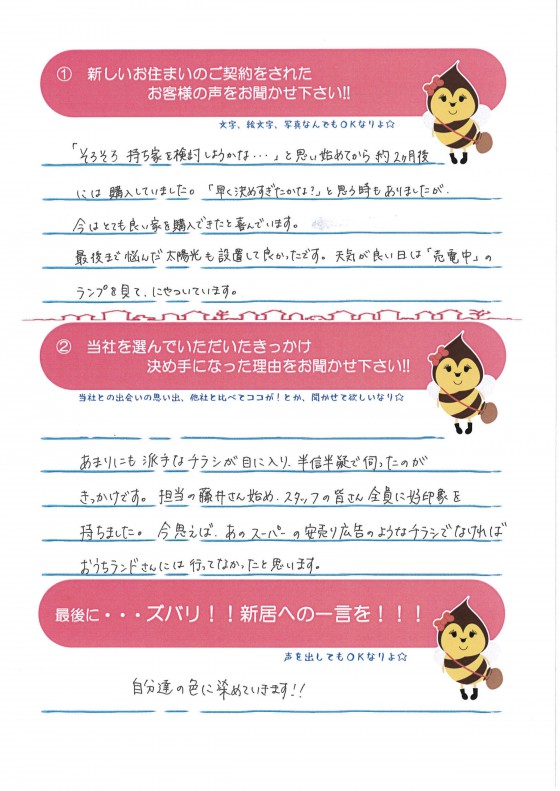 ① 新しいお住まいのご契約をされた
お客様の声をお聞かせ下さい!!
文字、絵文字、写真なんでもOKなりよ☆
「そろそろ 持ち家を検討しようかな・・・」と思い始めてから 約2ヶ月後
には 購入していました。「早く決めすぎたかな?」と思う時もありましたが、
今はとても良い家を購入できたと喜んでいます。
最後まで悩んだ太陽光も設置して良かったです。天気が良い日は「売電中」の
ランプを見て、にやついています。
② 当社を選んでいただいたきっかけ
決め手になった理由をお聞かせ下さい!!
当社との出会いの思い出、他社と比べてココが!とか、聞かせて欲しいなり☆
あまりにも派手なチラシが目に入り、半信半疑で伺ったのが
きっかけです。担当の藤井さん始め、スタッフの皆さん全員に好印象を
持ちました。今思えば、あのスーパーの安売り広告のようなチラシでなければ
おうちランドさんには行ってなかったと思います。
最後に・・・ズバリ!!新居への一言を!!!
声を出してもOKなりよ☆
自分達の色に染めていきます!!